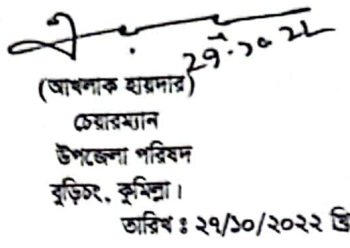 ২৭.১০.২২
(আখলাক হায়দার)
চেয়ারম্যান
উপজেলা পরিষদ
বুড়িচং, কুমিল্লা।
তারিখ ঃ ২৭/১০/২০২২ খ্রি